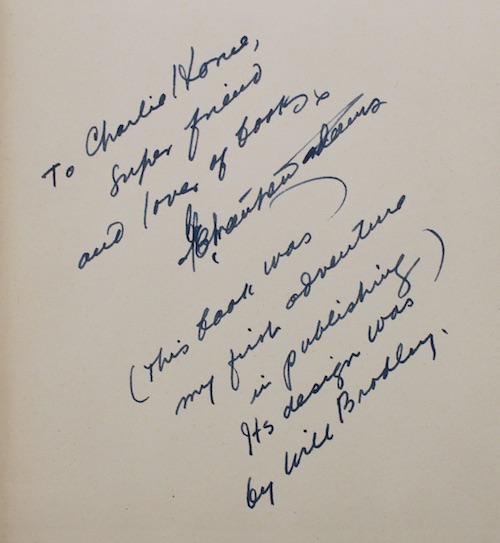 To Charlie Horne,
super friend
and lover of books
Adams
(This book was
my first adventure
in publishing)
Its design was
by Will Bradley.